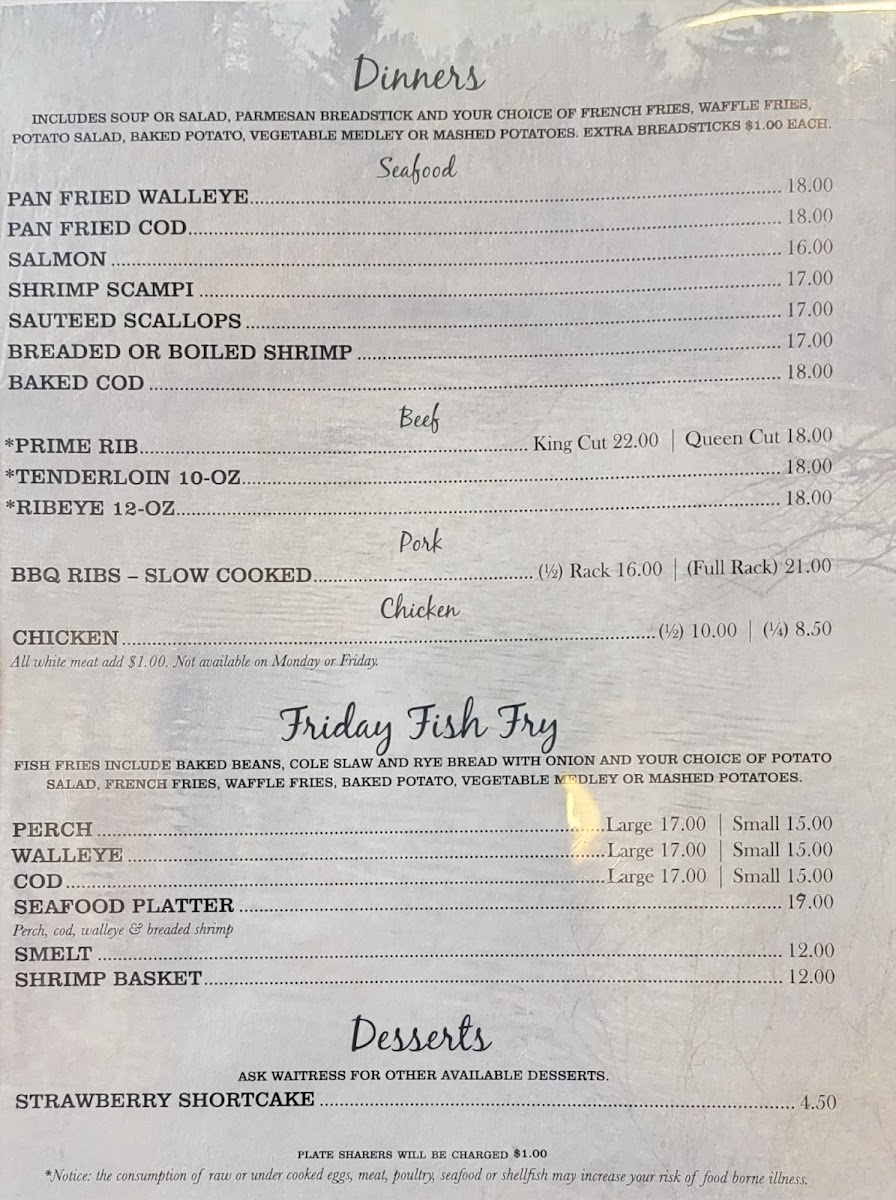 Dinners
INCLUDES SOUP OR SALAD, PARMESAN BREADSTICK AND YOUR CHOICE OF FRENCH FRIES, WAFFLE FRIES,
POTATO SALAD, BAKED POTATO, VEGETABLE MEDLEY OR MASHED POTATOES. EXTRA BREADSTICKS $1.00 EACH.
Seafood
PAN FRIED WALLEYE 18.00
PAN FRIED COD 18.00
SALMON 16.00
SHRIMP SCAMPI 17.00
SAUTEED SCALLOPS 17.00
BREADED OR BOILED SHRIMP 17.00
BAKED COD 18.00
Beef
*PRIME RIB King Cut 22.00 | Queen Cut 18.00
*TENDERLOIN 10-OZ 18.00
*RIBEYE 12-OZ 18.00
Pork
BBQ RIBS – SLOW COOKED (½) Rack 16.00 | (Full Rack) 21.00
Chicken
CHICKEN (½) 10.00 | (¼) 8.50
All white meat add $1.00. Not available on Monday or Friday.
Friday Fish Fry
FISH FRIES INCLUDE BAKED BEANS, COLE SLAW AND RYE BREAD WITH ONION AND YOUR CHOICE OF POTATO
SALAD, FRENCH FRIES, WAFFLE FRIES, BAKED POTATO, VEGETABLE MEDLEY OR MASHED POTATOES.
PERCH Large 17.00 | Small 15.00
WALLEYE Large 17.00 | Small 15.00
COD Large 17.00 | Small 15.00
SEAFOOD PLATTER
Perch, cod, walleye & breaded shrimp
SMELT 12.00
SHRIMP BASKET 12.00
Desserts
ASK WAITRESS FOR OTHER AVAILABLE DESSERTS.
STRAWBERRY SHORTCAKE 4.50
PLATE SHARERS WILL BE CHARGED $1.00
*Notice: the consumption of raw or under cooked eggs, meat, poultry, seafood or shellfish may increase your risk of food borne illness.